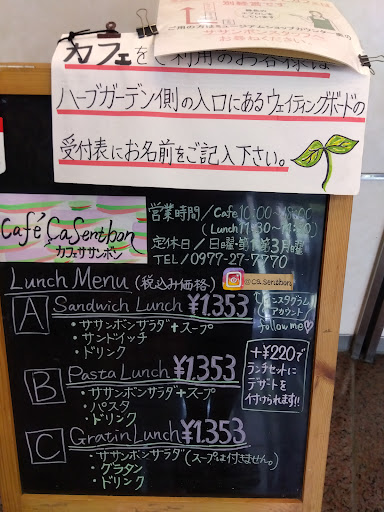 カフェをご利用のお客様は
ハーブガーデン側の入口にあるウェイティングボードの
受付表にお名前をご記入下さい。
Café CaSenthon
カフェササンボン
営業時間/Cafe 10:00~
(Lunch 11:30~
定休日/日曜・第1第3月曜
TEL/0977-27-7770
Lunch Menu (税込み価格)
@ca.senthon
インスタグラム
アカウント
follow me♡
A Sandwich Lunch ¥1.353
・ササンボンサラダ+スープ
・サンドイッチ
・ドリンク
B Pasta Lunch ¥1.353
・ササンボンサラダ+スープ
・パスタ
・ドリンク
+¥220で
ランチセットに
デザートを
付けられます!!
C Gratin Lunch ¥1.353
・ササンボンサラダ(スープは付きません。)
・グラタン
・ドリンク